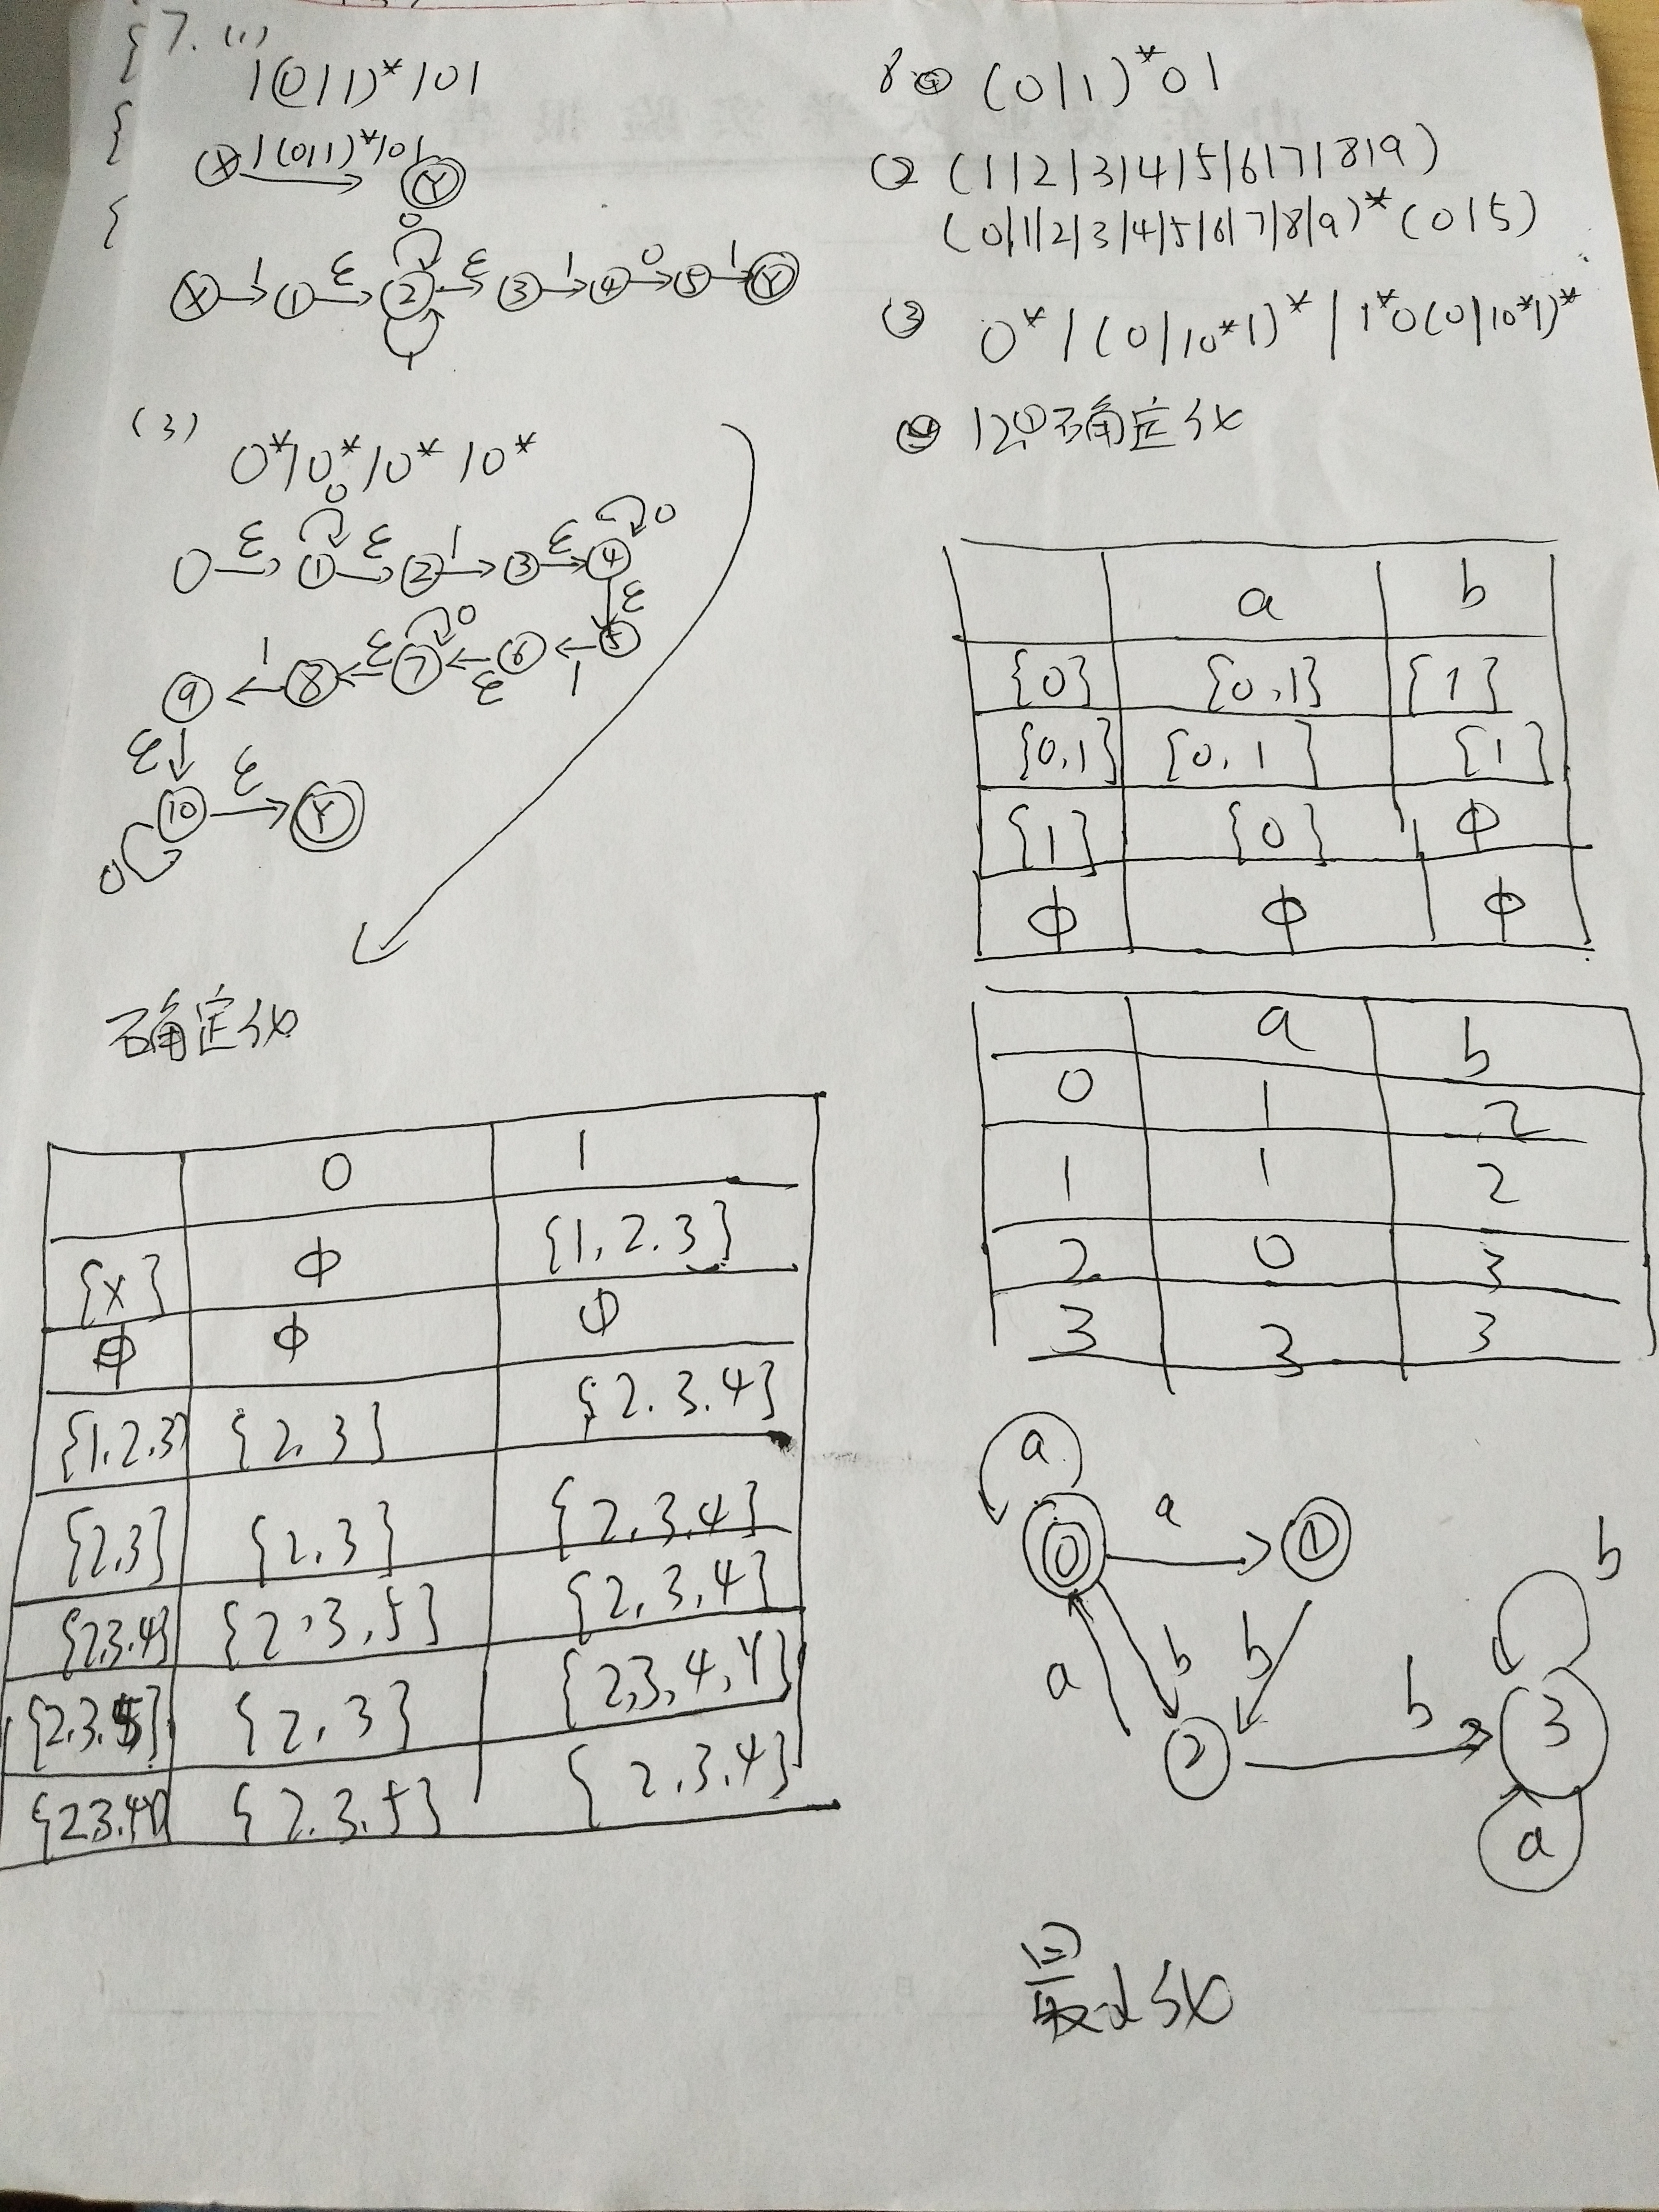 7. (1)
1(0|1)*101
X 1(0|1)*101 Y
0
X 1 1 ε 2 ε 3 1 4 0 5 1 Y
1
(3)
0*10*10*10*
0 0
0 ε 1 ε 2 1 3 ε 4
ε
9 1 8 ε 7 0 ε 6 1 5
ε
10 ε Y
0
确定化
0 1
{X} ϕ {1,2.3}
ϕ ϕ ϕ
{1.2.3} {2.3} {2.3.4}
{2.3} {2.3} {2.3.4}
{2.3.4} {2,3,5} {2,3,4}
{2.3.5} {2,3} {2,3,4,Y}
{2.3.4Y} {2.3.5} {2.3.4}
8 ① (0|1)*01
② (1|2|3|4|5|6|7|8|9)
(0|1|2|3|4|5|6|7|8|9)*(0|5)
③ 0*|(0|10*1)*|1*0(0|10*1)*
12① 确定化
a b
{0} {0,1} {1}
{0,1} {0,1} {1}
{1} {0} ϕ
ϕ ϕ ϕ
a b
0 1 2
1 1 2
2 0 3
3 3 3
a
0 a 1
b
a b b
2 b 3
a
最小化